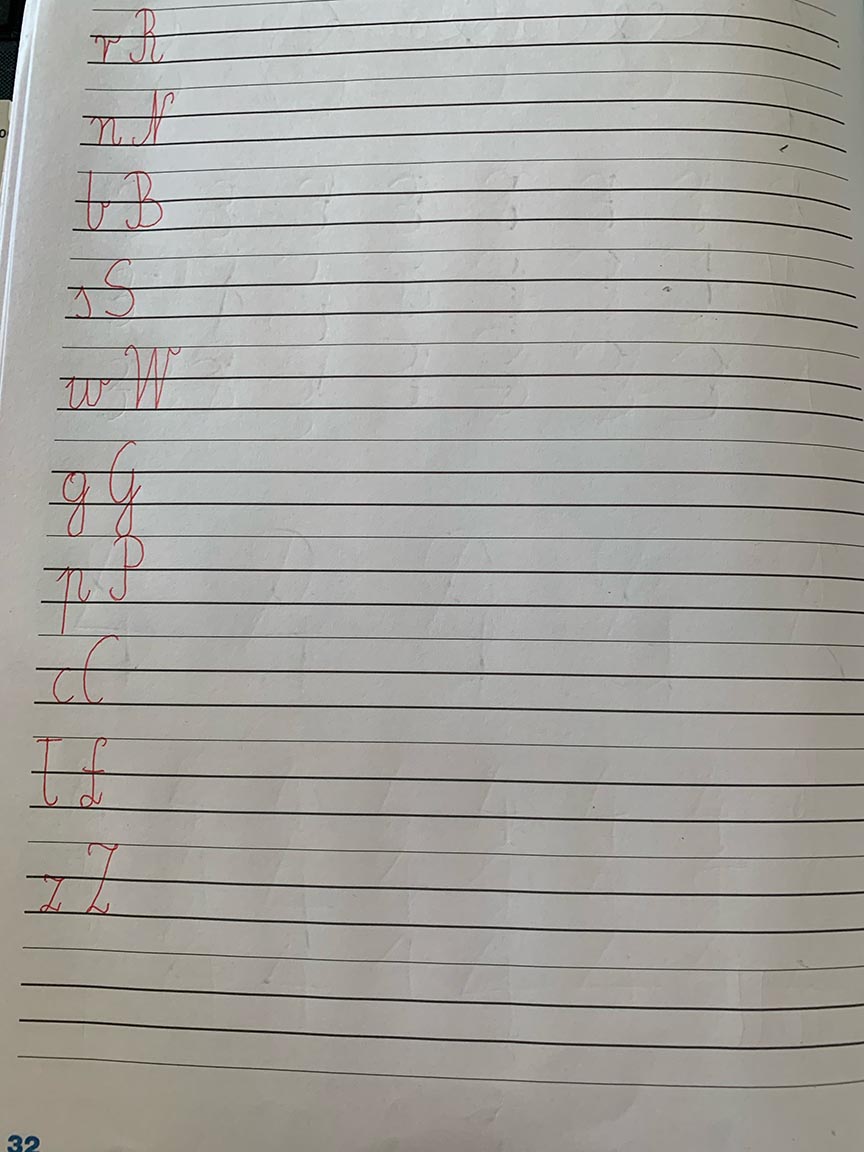 r R
n N
b B
s S
w W
g G
p P
c C
T f
z Z
32